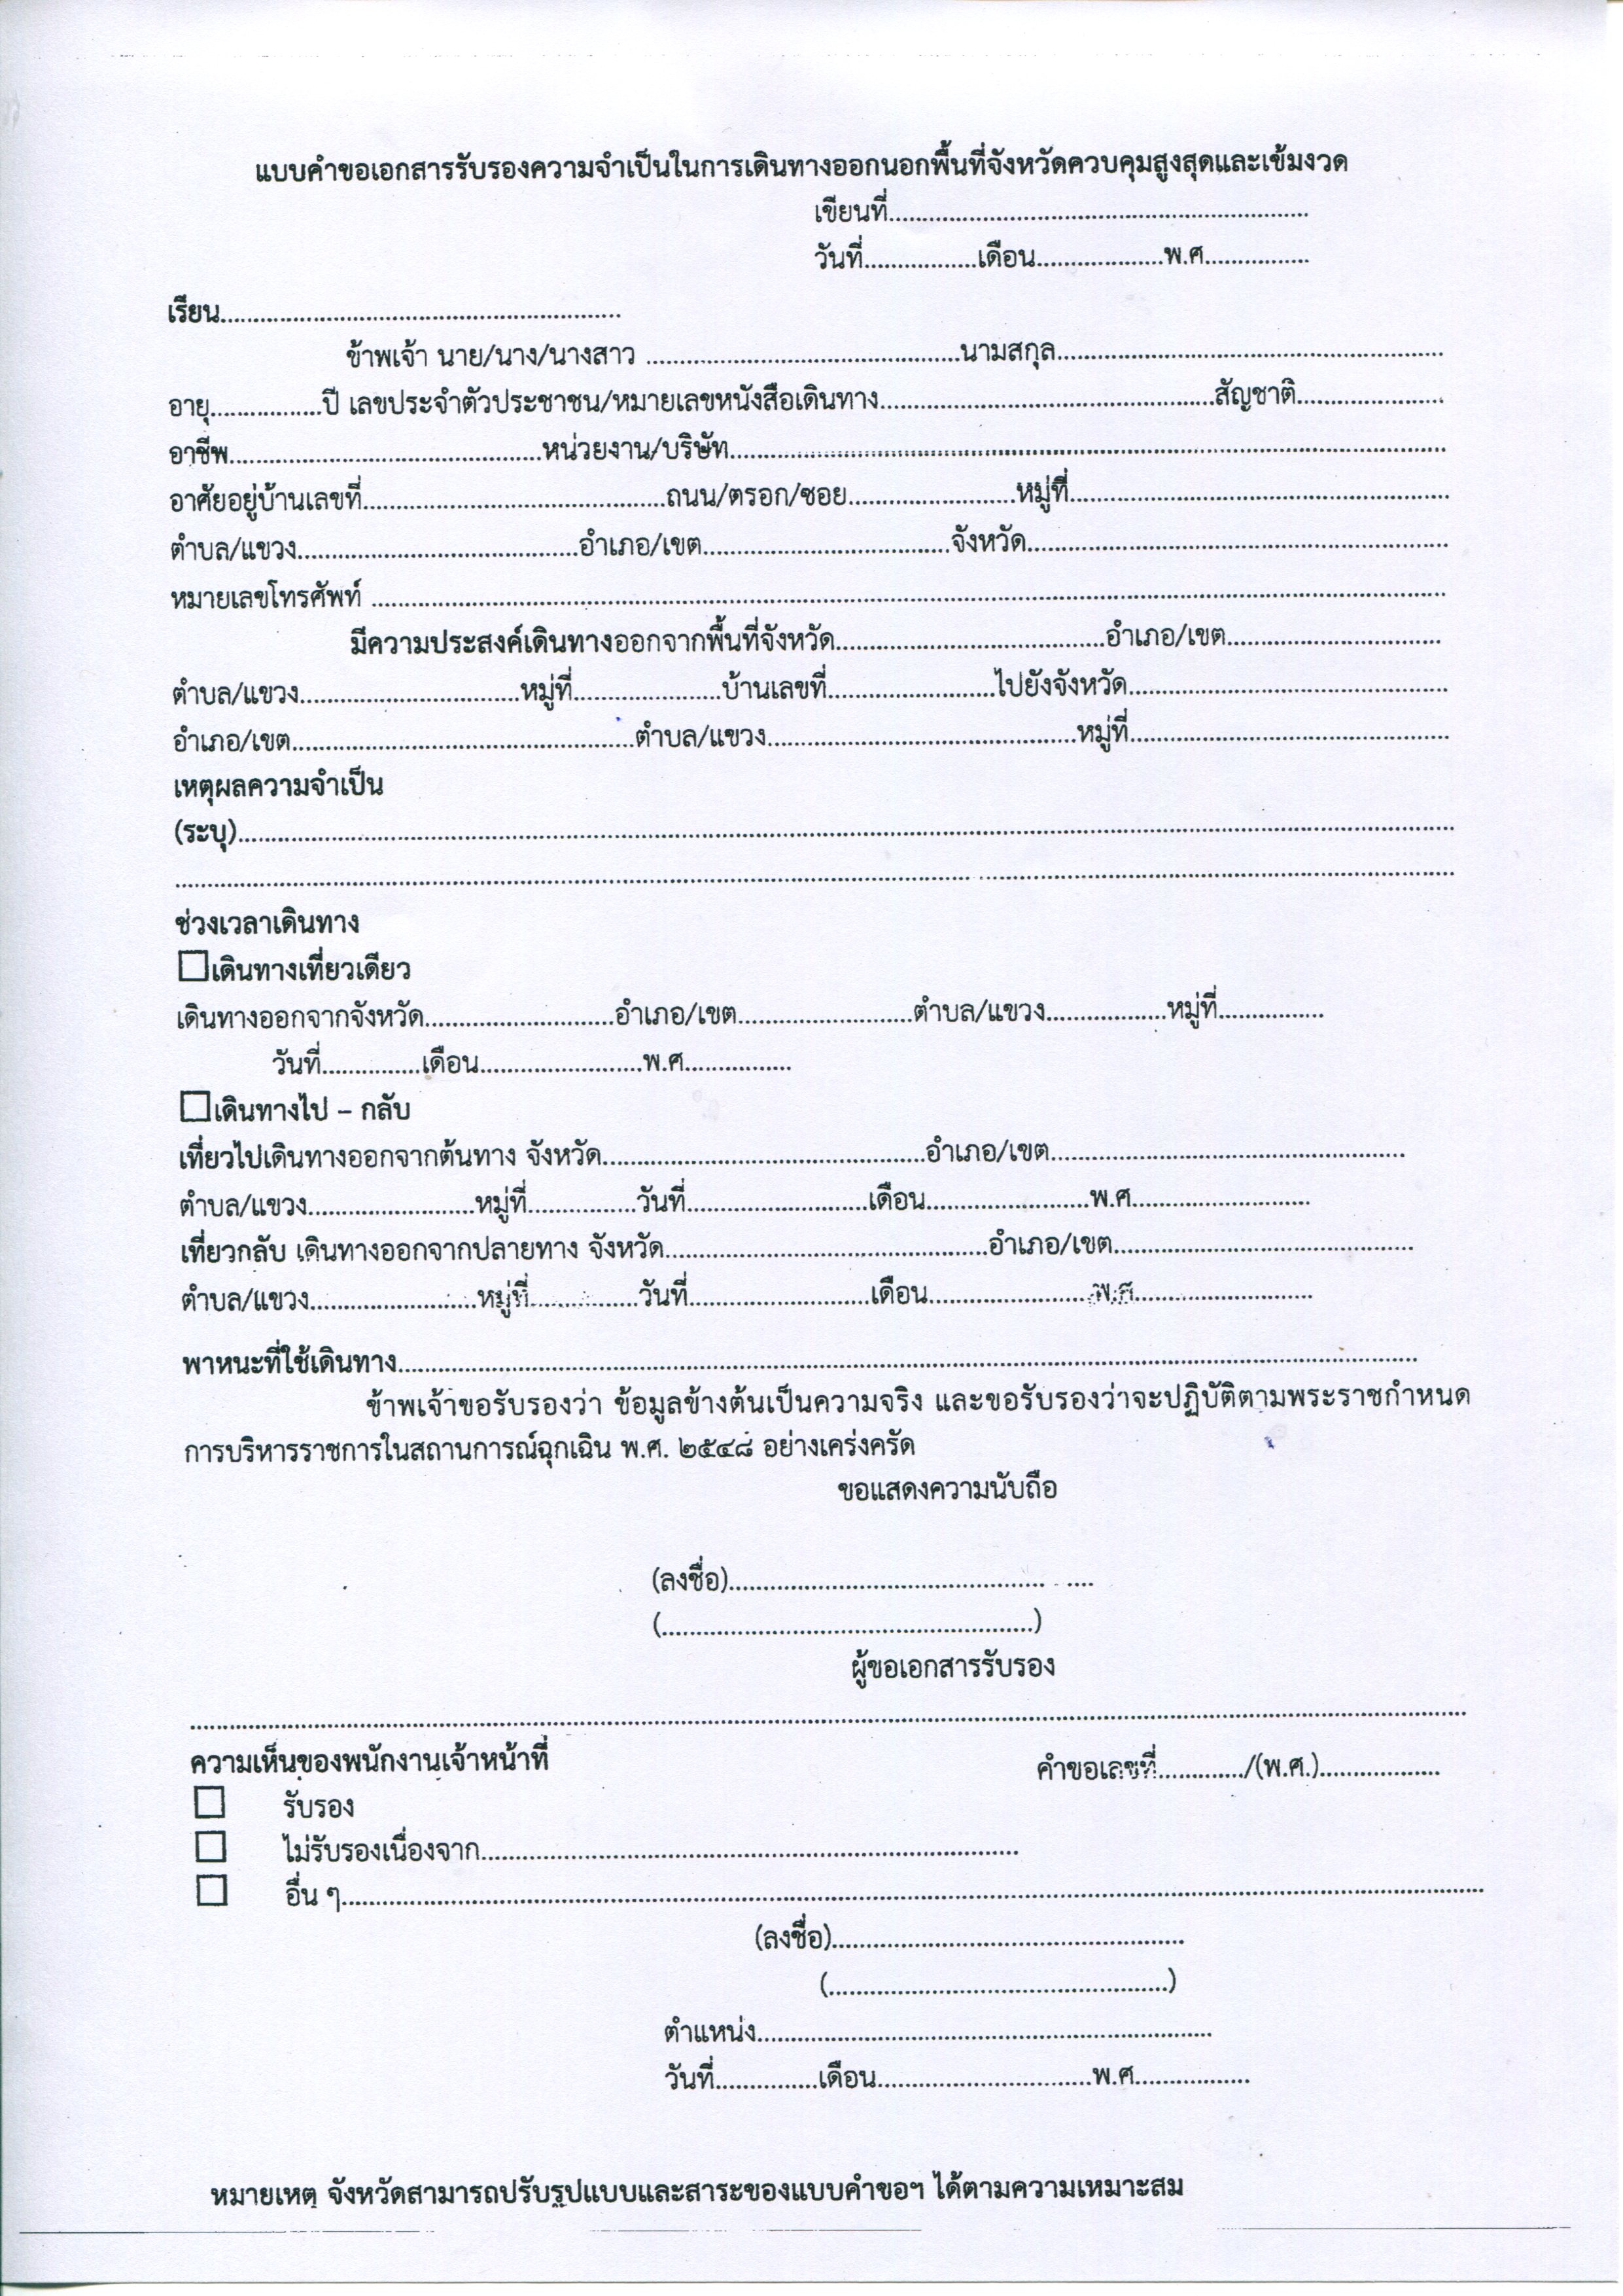 แบบคำขอเอกสารรับรองความจำเป็นในการเดินทางออกนอกพื้นที่จังหวัดควบคุมสูงสุดและเข้มงวด
เขียนที่............................................................
วันที่.................เดือน...................พ.ศ................
เรียน............................................................
ข้าพเจ้า นาย/นาง/นางสาว ................................................นามสกุล..........................................................
อายุ.................ปี เลขประจำตัวประชาชน/หมายเลขหนังสือเดินทาง..................................................สัญชาติ......................
อาชีพ...............................................หน่วยงาน/บริษัท............................................................................................
อาศัยอยู่บ้านเลขที่.............................................ถนน/ตรอก/ซอย.........................หมู่ที่.........................................................
ตำบล/แขวง..........................................อำเภอ/เขต.....................................จังหวัด...............................................................
หมายเลขโทรศัพท์ ................................................................................................................................
มีความประสงค์เดินทางออกจากพื้นที่จังหวัด........................................อำเภอ/เขต................................
ตำบล/แขวง.................................หมู่ที่......................บ้านเลขที่.........................ไปยังจังหวัด................................................
อำเภอ/เขต...................................................ตำบล/แขวง..............................................หมู่ที่................................................
เหตุผลความจำเป็น
(ระบุ)................................................................................................................................................
................................................................................................................................................
ช่วงเวลาเดินทาง
☐เดินทางเที่ยวเดียว
เดินทางออกจากจังหวัด............................อำเภอ/เขต..........................ตำบล/แขวง..................หมู่ที่................
วันที่...............เดือน........................พ.ศ................
☐เดินทางไป – กลับ
เที่ยวไปเดินทางออกจากต้นทาง จังหวัด................................................อำเภอ/เขต.....................................................
ตำบล/แขวง.........................หมู่ที่................วันที่...........................เดือน........................พ.ศ...........................
เที่ยวกลับ เดินทางออกจากปลายทาง จังหวัด................................................อำเภอ/เขต.............................................
ตำบล/แขวง.........................หมู่ที่................วันที่...........................เดือน........................พ.ศ...........................
พาหนะที่ใช้เดินทาง................................................................................................................................
ข้าพเจ้าขอรับรองว่า ข้อมูลข้างต้นเป็นความจริง และขอรับรองว่าจะปฏิบัติตามพระราชกำหนด
การบริหารราชการในสถานการณ์ฉุกเฉิน พ.ศ. ๒๕๔๘ อย่างเคร่งครัด
ขอแสดงความนับถือ
(ลงชื่อ)......................................................
(.......................................................)
ผู้ขอเอกสารรับรอง
................................................................................................................................................
ความเห็นของพนักงานเจ้าหน้าที่ คำขอเลขที่............./(พ.ศ.)..................
☐ รับรอง
☐ ไม่รับรองเนื่องจาก................................................................................
☐ อื่น ๆ................................................................................................................................
(ลงชื่อ).....................................................
(...................................................)
ตำแหน่ง....................................................................
วันที่...............เดือน................................พ.ศ.................
หมายเหตุ จังหวัดสามารถปรับรูปแบบและสาระของแบบคำขอฯ ได้ตามความเหมาะสม